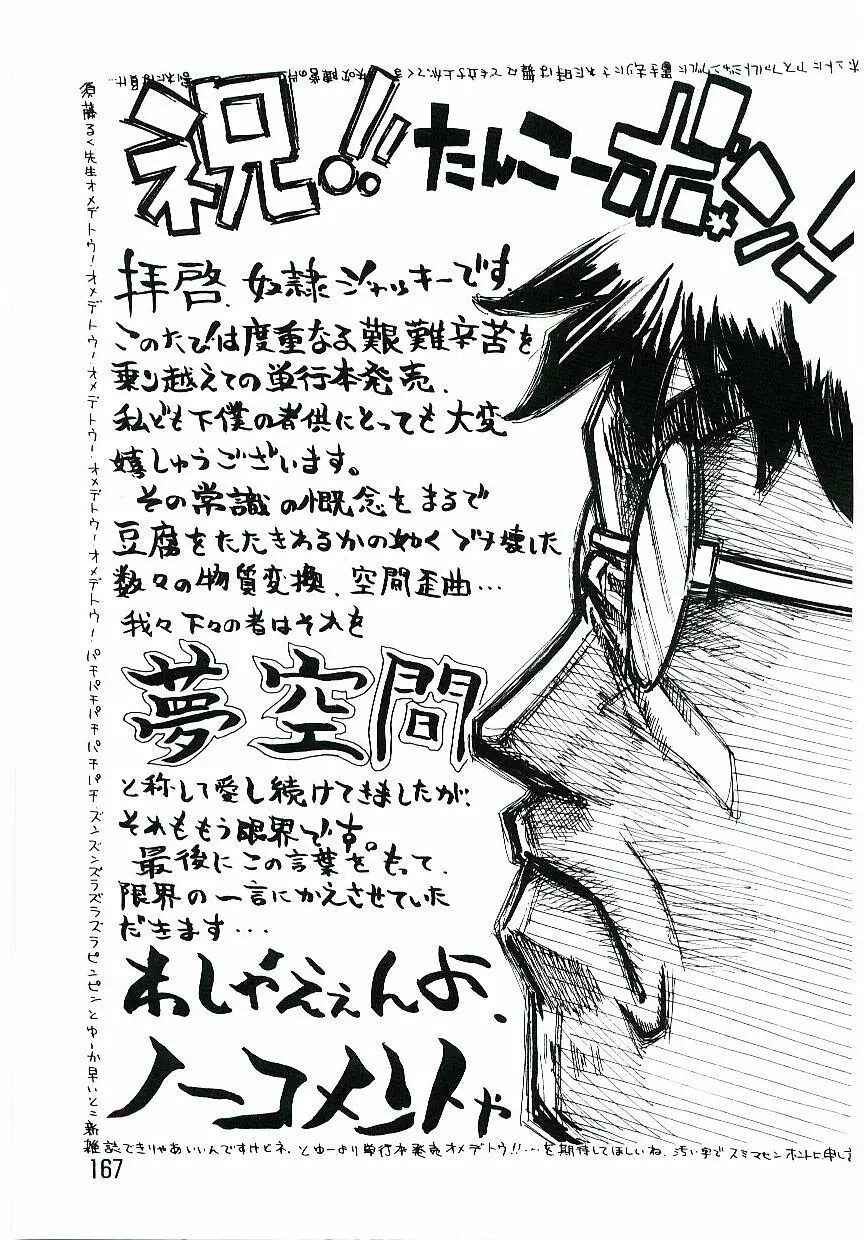 祝!! たんこーボン!!
拝啓、奴隷ジャッキーです。
このたびは度重なる艱難辛苦を
乗り越えての単行本発売、
私ども下僕の者供にとっても大変
嬉しゅうございます。
その常識の慨念をまるで
豆腐をたたきわるかの如くブチ壊した
数々の物質変換、空間歪曲…
我々下々の者はそれを
夢空間
と称して愛し続けてきましたが、
それももう限界です。
最後にこの言葉をもって、
限界の一言にかえさせていた
だきます…
わしゃええんよ、
ノーコメントや
須藤るく先生オメデトウ!オメデトウ!オメデトウ!オメデトウ!オメデトウ!パチパチパチパチパチパチ ズンズンズラズラズラピンピンとゆーか早いとこ新
雑誌できりゃあいいんですけどネ、とゆーより単行本発売オメデトウ!!…を期待してほしいね、汚い字でスミマセンホントに申し
167